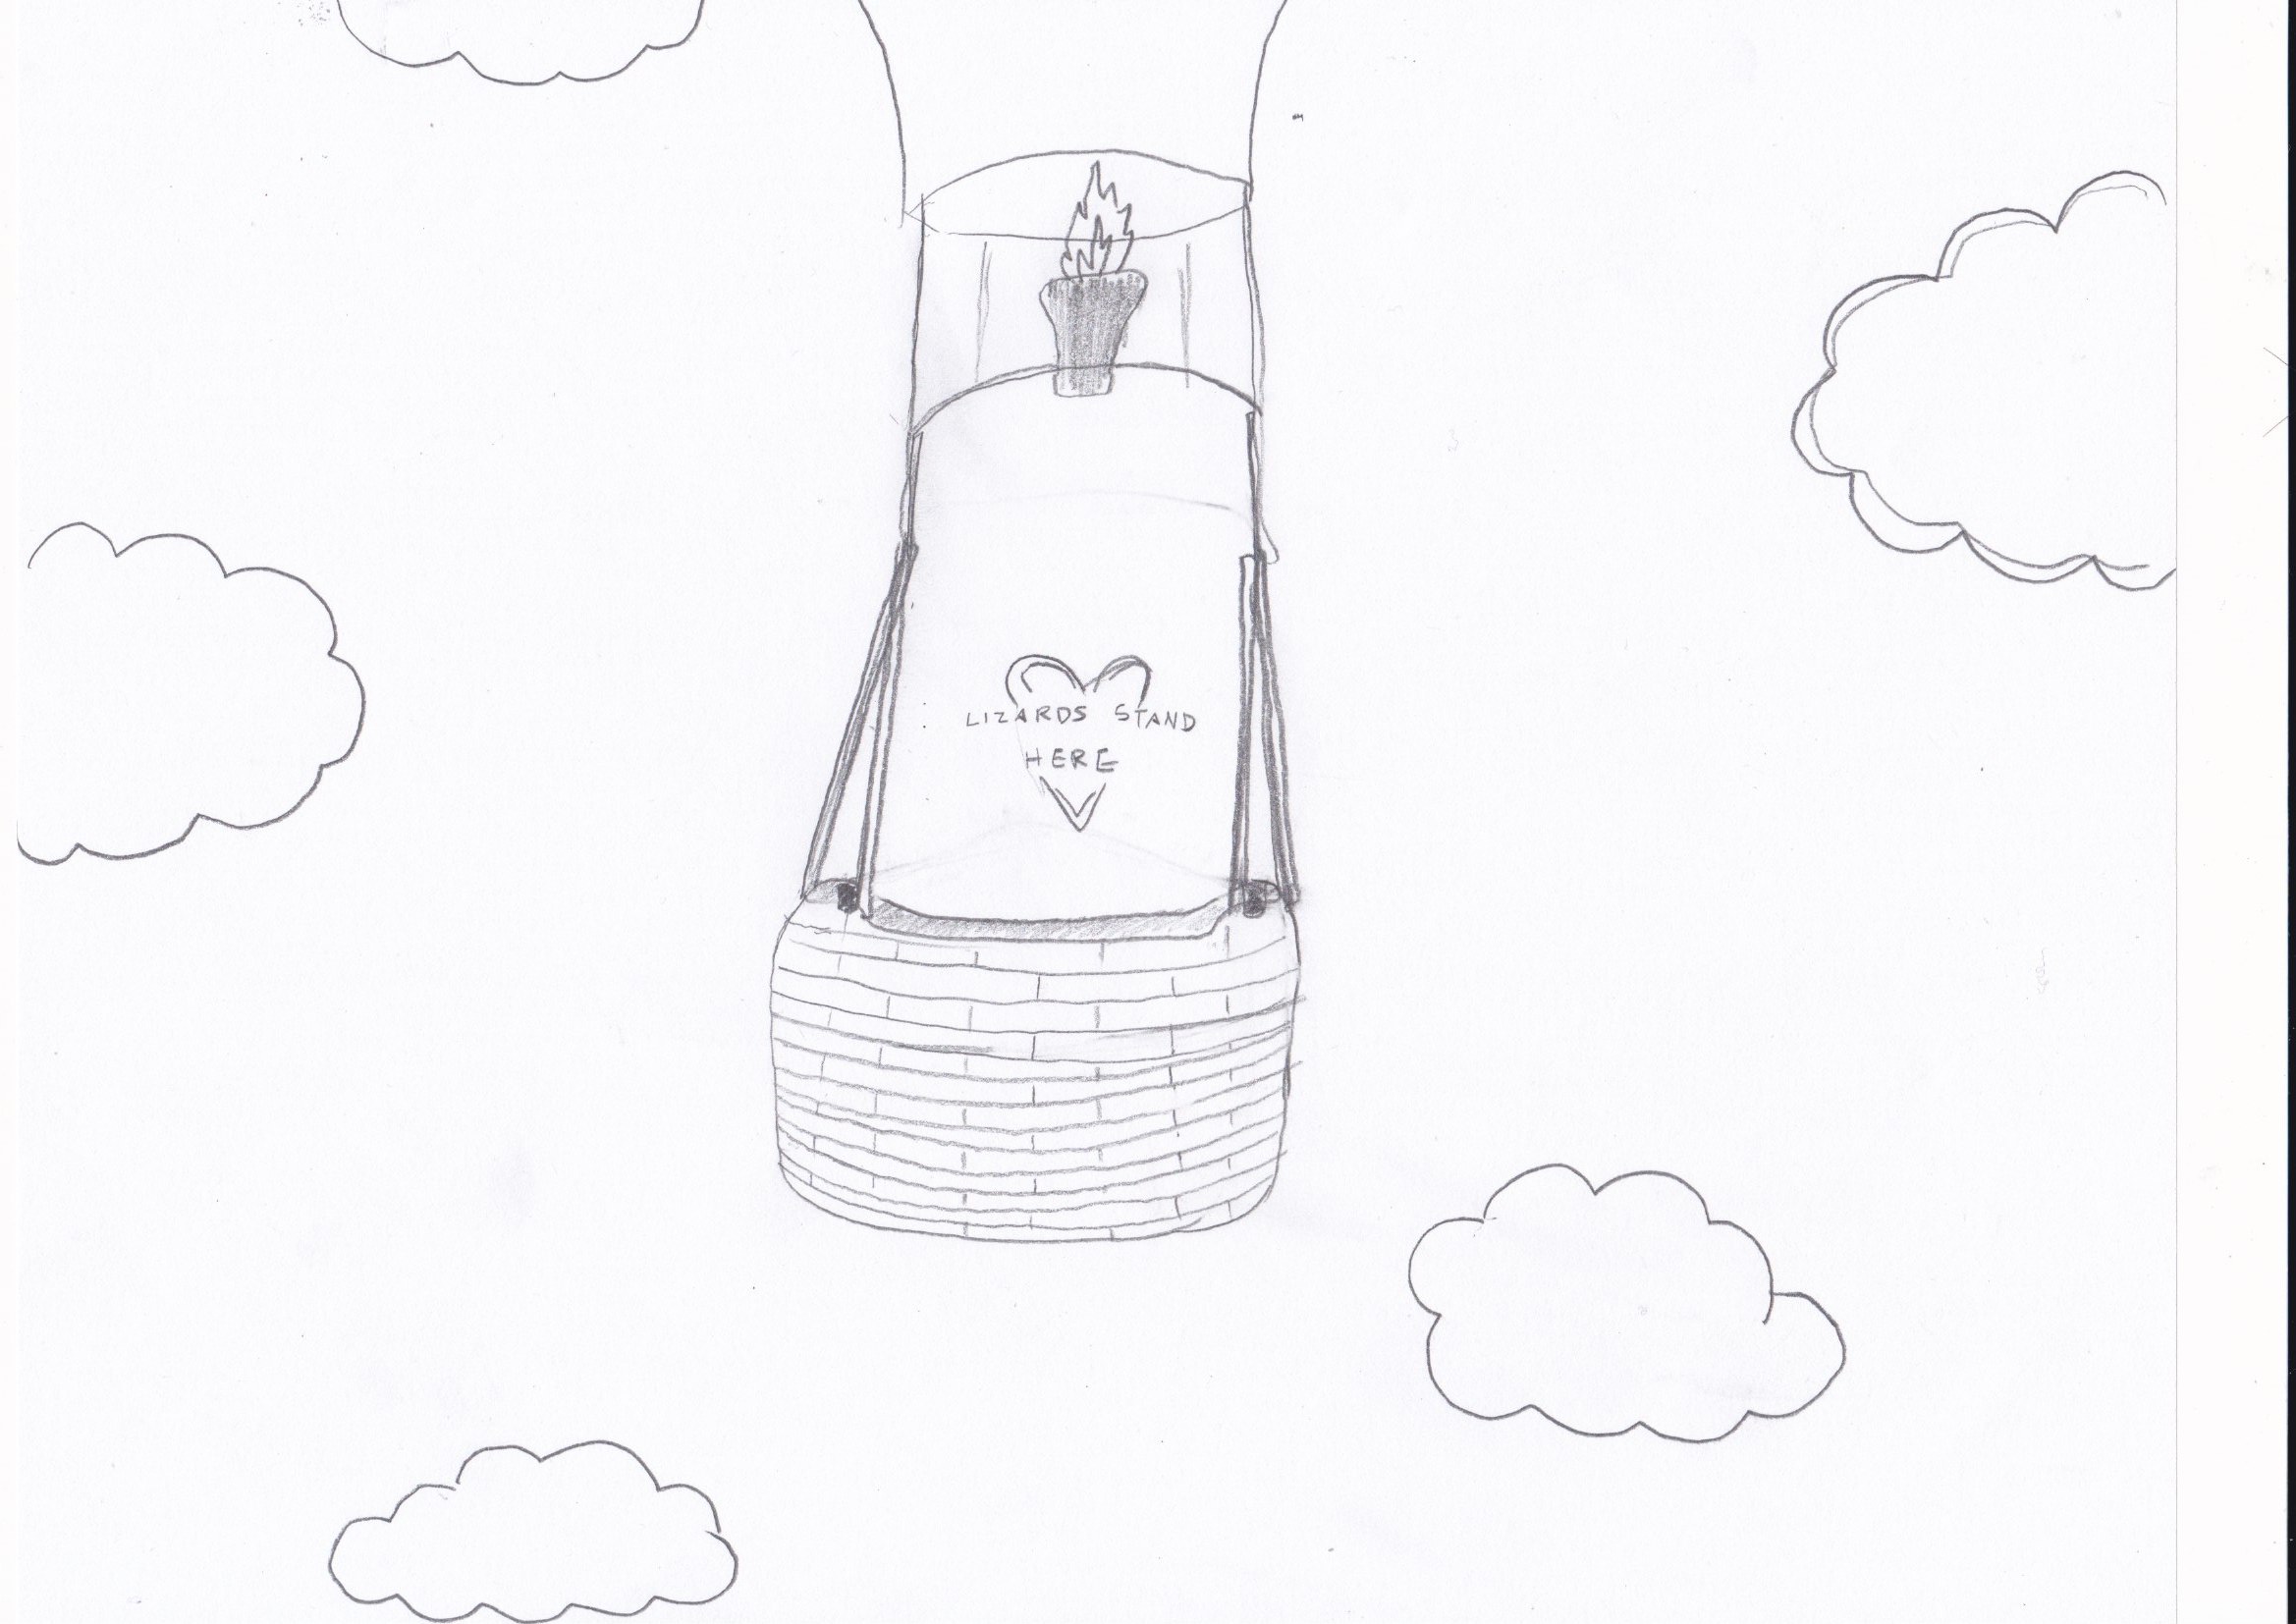 LIZARDS STAND
HERE